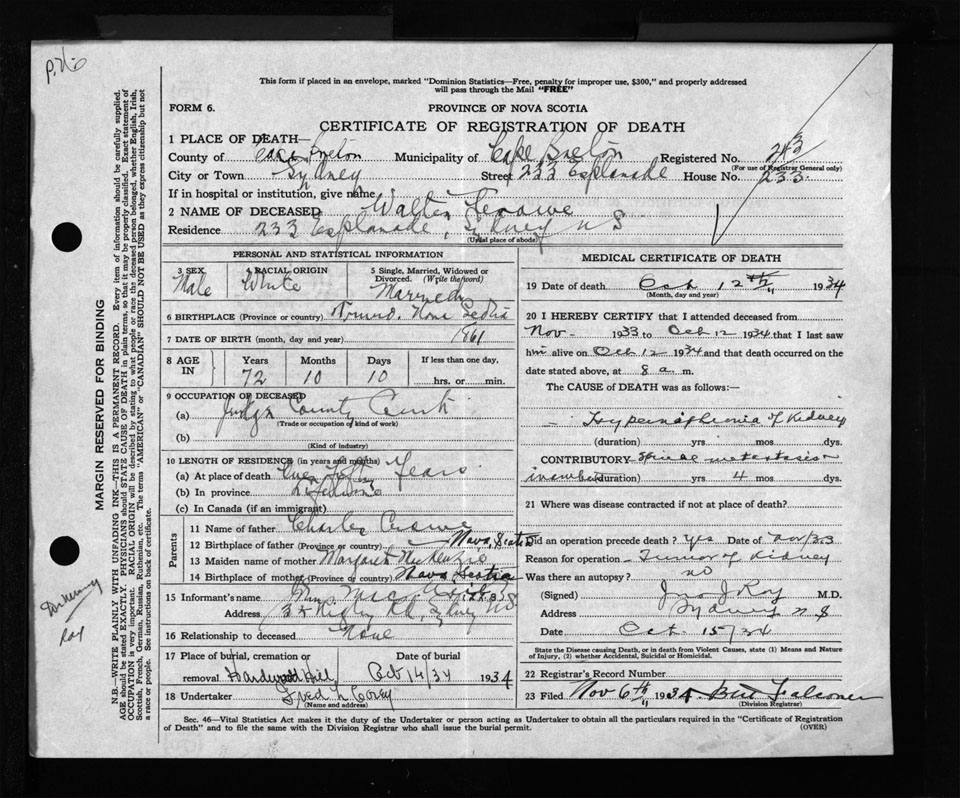 P.N.6
This form if placed in an envelope, marked "Dominion Statistics—Free, penalty for improper use, $300," and properly addressed
will pass through the Mail "FREE"
FORM 6.
PROVINCE OF NOVA SCOTIA
CERTIFICATE OF REGISTRATION OF DEATH
1 PLACE OF DEATH—
County of Cape Breton Municipality of Cape Breton Registered No. 243
(For use of Registrar General only)
City or Town Sydney Street 233 Esplanade House No. 233
If in hospital or institution, give name
2 NAME OF DECEASED Walter Crowe
Residence 233 Esplanade, Sydney N S
(Usual place of abode)
PERSONAL AND STATISTICAL INFORMATION
3 SEX Male
4 RACIAL ORIGIN White
5 Single, Married, Widowed or Divorced. (Write the word) Married
6 BIRTHPLACE (Province or country) Truro. Nova Scotia
7 DATE OF BIRTH (month, day and year) 1861
8 AGE IN Years 72 Months 10 Days 10 If less than one day, hrs. or min.
9 OCCUPATION OF DECEASED
(a) Judge County Court
(Trade or occupation or kind of work)
(b)
(Kind of industry)
10 LENGTH OF RESIDENCE (in years and months)
(a) At place of death Over Fifty Years
(b) In province Lifetime
(c) In Canada (if an immigrant)
Parents
11 Name of father Charles Crowe
12 Birthplace of father (Province or country) Nova Scotia
13 Maiden name of mother Margaret McKenzie
14 Birthplace of mother (Province or country) Nova Scotia
15 Informant's name
Address Rd, Sydney NS
16 Relationship to deceased None
17 Place of burial, cremation or removal Hardwood Hill Date of burial Oct 14/34 1934
18 Undertaker Fred
(Name and address)
MEDICAL CERTIFICATE OF DEATH
19 Date of death Oct. 12th 1934
(Month, day and year)
20 I HEREBY CERTIFY that I attended deceased from
Nov- 1933 to Oct 12 1934 that I last saw
him alive on Oct 12 1934 and that death occurred on the
date stated above, at 8 a. m.
The CAUSE of DEATH was as follows:—
- Hypernephroma of Kidney
(duration) yrs mos dys.
CONTRIBUTORY Spinal metastasis
(duration) yrs 4 mos dys.
21 Where was disease contracted if not at place of death?
Did an operation precede death? Yes Date of Nov/33
Reason for operation Tumor of Kidney
Was there an autopsy? no
(Signed) Jno J Roy M.D.
Address Sydney N S
Date Oct. 15/34
State the Disease causing Death, or in death from Violent Causes, state (1) Means and
Nature of Injury, (2) whether Accidental, Suicidal or Homicidal.
22 Registrar's Record Number
23 Filed Nov 6th 1934 Falconer
(Division Registrar)
Sec. 46—Vital Statistics Act makes it the duty of the Undertaker or person acting as Undertaker to obtain all the particulars required in the "Certificate of Registration
of Death" and to file the same with the Division Registrar who shall issue the burial permit.
(OVER)
MARGIN RESERVED FOR BINDING
N.B.—WRITE PLAINLY WITH UNFADING INK—THIS IS A PERMANENT RECORD. Every item of information should be carefully supplied.
AGE should be stated EXACTLY. PHYSICIANS should STATE CAUSE OF DEATH in plain terms, so that it may be properly classified. Exact statement of
OCCUPATION is very important. RACIAL ORIGIN will be described by stating to what people or race the deceased person belonged, whether English, Irish,
Scottish, French, German, Russian, Ruthenian, etc. The terms "AMERICAN" or "CANADIAN" SHOULD NOT BE USED as they express citizenship but not
a race or people. See instructions on back of certificate.
Roy